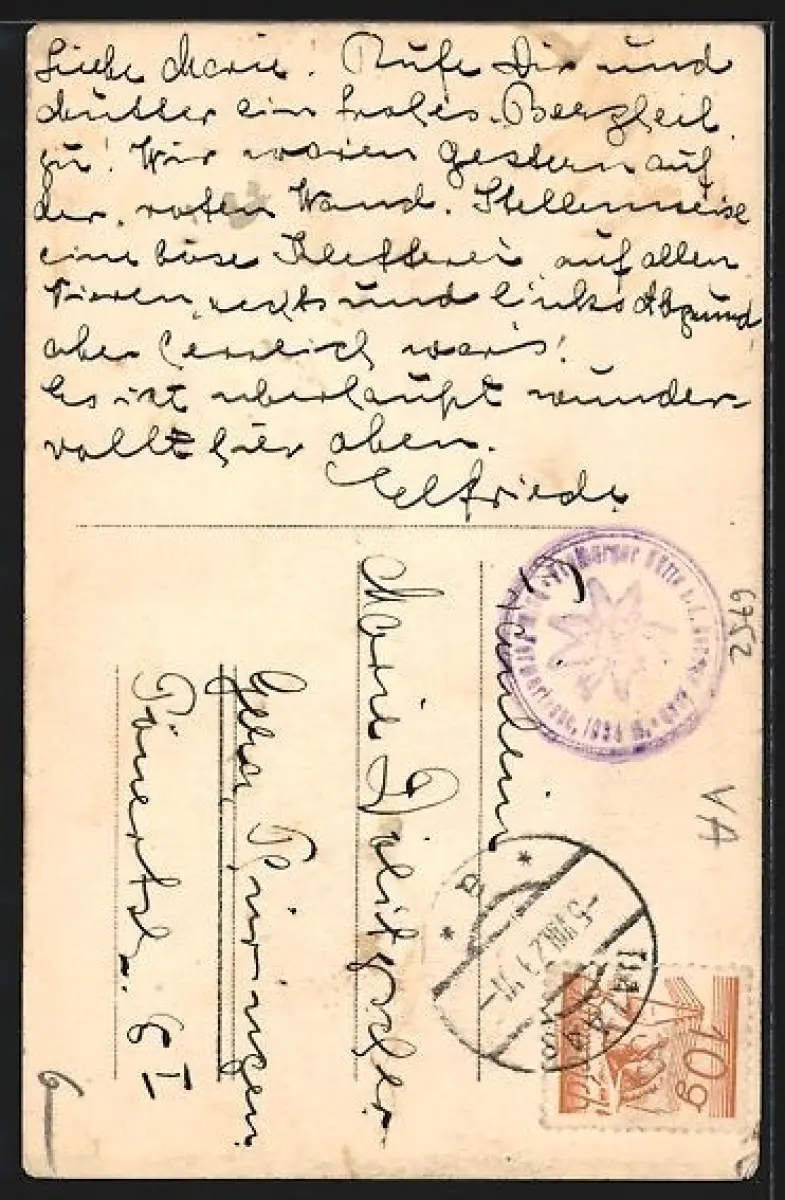 Liebe Marie! Rufe Dir und
Mutter ein frohes Bergheil
zu! Wir waren gestern auf
der roten Wand. Stellenweise
eine böse Kletterei auf allen
Vieren, rechts und links Abgrund
aber herrlich war's!
Es ist überhaupt wunder-
voll hier oben.
Elfriede
Fräulein
Marie
Gera Thüringen
6752
VA
10g
6